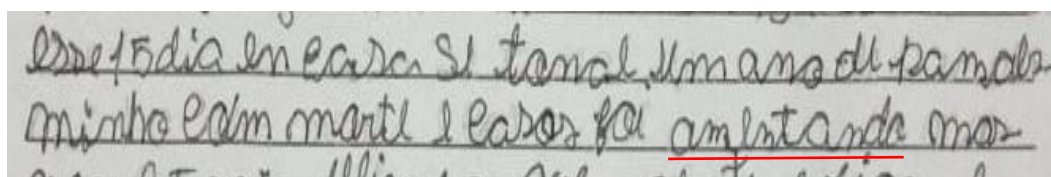 esse 15 dia en casa si tonol um ano di pamde
minho com morti e casos foi amentando mas